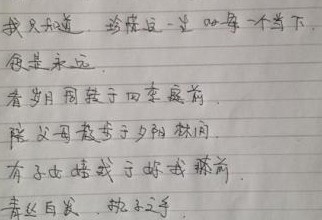 我只知道，珍惜这一生的每一个当下，
便是永远。
看岁月周转于四季庭前，
陪父母散步于夕阳林间，
有子女嬉戏于你我膝前，
青丝白发，执子之手